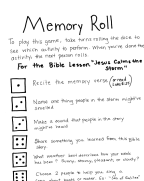 Memory Roll
To play this game, take turns rolling the dice to
see which activity to perform. When you've done the
activity the next person rolls.
For the Bible Lesson "Jesus Calms the
Storm"
Recite the memory verse (or read carefully)
Name one thing people in the storm might've
smelled
Make a sound that people in the story
might've heard
Share something you learned from this Bible
story
What weather best describes how your week
has been? (sunny, stormy, or cloudy?)
Choose 2 people to help you sing a
song about boats or water. Ex: